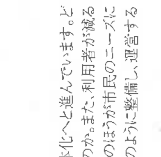 化へと進んでいます。ど
のか。また、利用者が減る
のほうが市民のニーズに
のように整備し、運営する